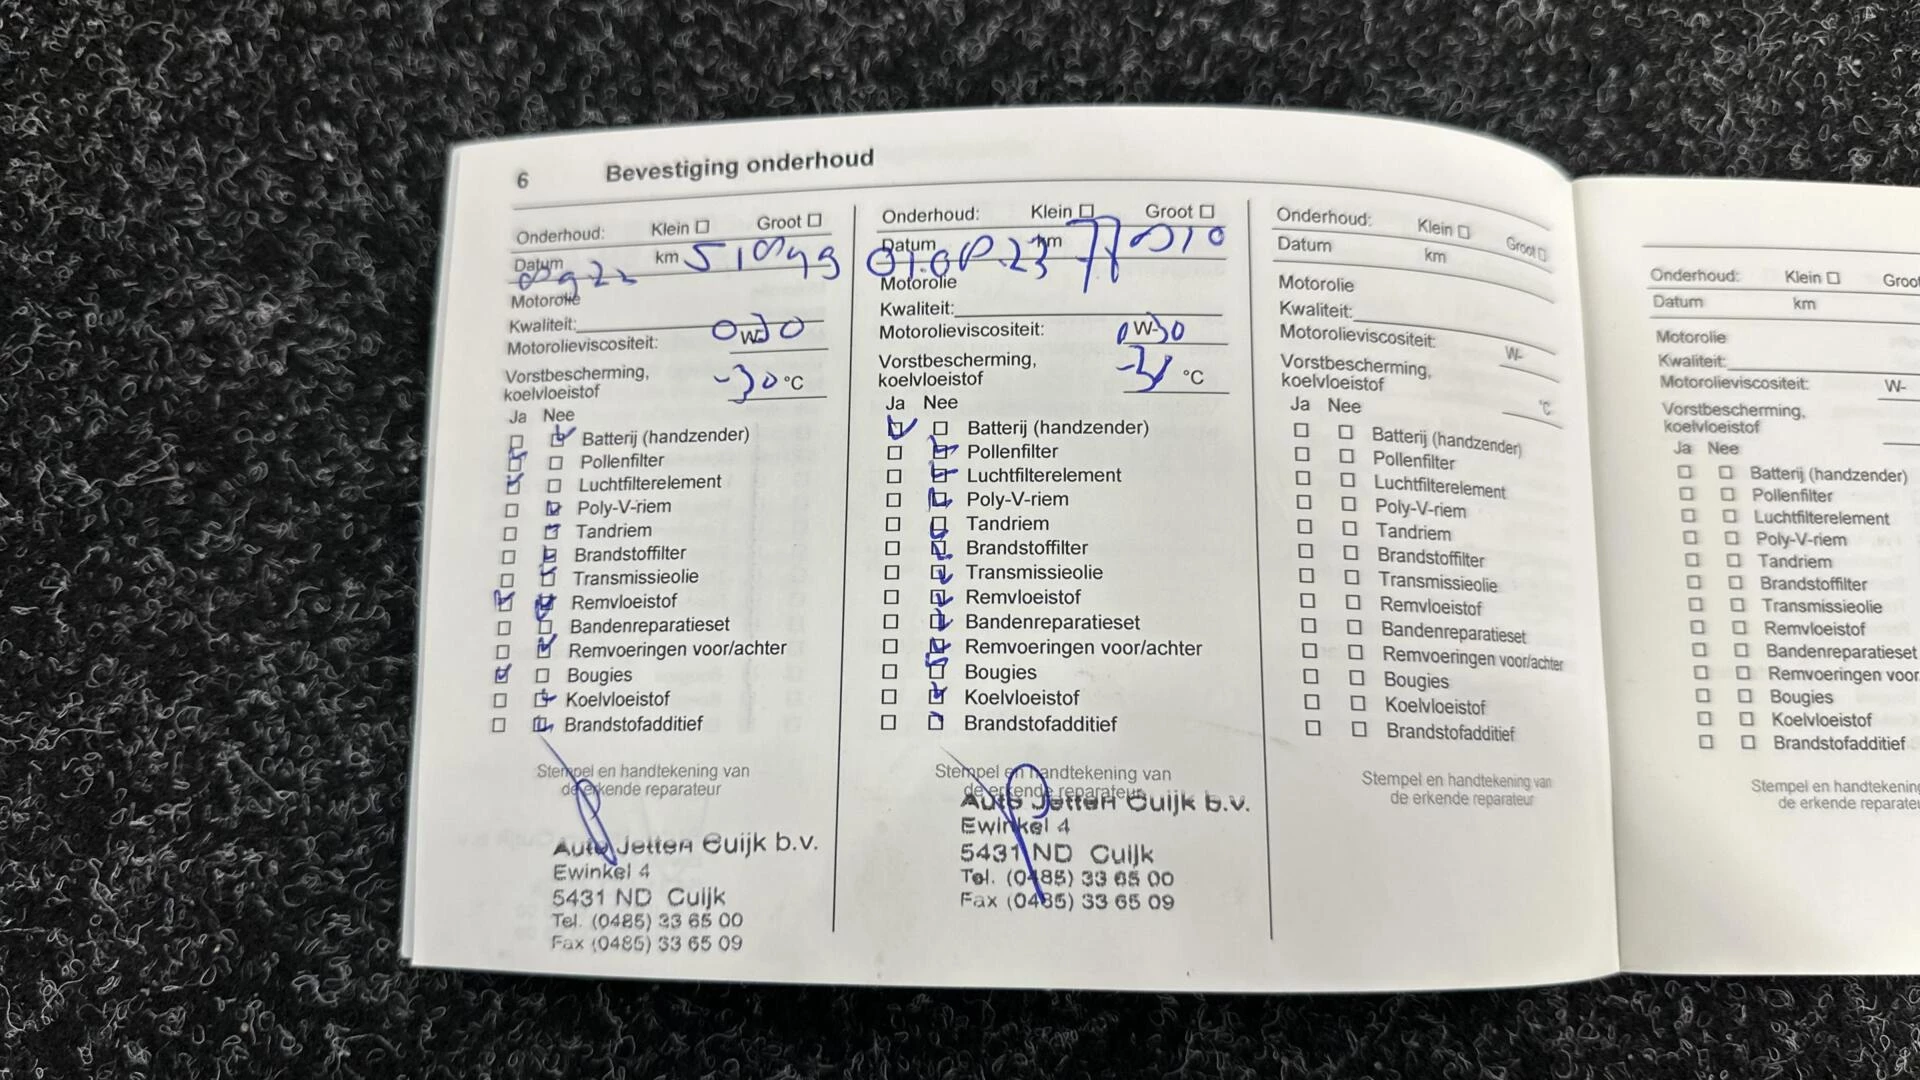 6 Bevestiging onderhoud
Onderhoud: Klein Groot
Datum km
Motorolie
Kwaliteit:
Motorolieviscositeit: 0W-30
Vorstbescherming,
koelvloeistof -30 °C
Ja Nee
Batterij (handzender)
Pollenfilter
Luchtfilterelement
Poly-V-riem
Tandriem
Brandstoffilter
Transmissieolie
Remvloeistof
Bandenreparatieset
Remvoeringen voor/achter
Bougies
Koelvloeistof
Brandstofadditief
Stempel en handtekening van
de erkende reparateur
Auto Jetten Cuijk b.v.
Ewinkel 4
5431 ND Cuijk
Tel. (0485) 33 65 00
Fax (0485) 33 65 09
Onderhoud: Klein Groot
Datum km
Motorolie
Kwaliteit:
Motorolieviscositeit: 0W-30
Vorstbescherming,
koelvloeistof °C
Ja Nee
Batterij (handzender)
Pollenfilter
Luchtfilterelement
Poly-V-riem
Tandriem
Brandstoffilter
Transmissieolie
Remvloeistof
Bandenreparatieset
Remvoeringen voor/achter
Bougies
Koelvloeistof
Brandstofadditief
Stempel en handtekening van
de erkende reparateur
Auto Jetten Cuijk b.v.
Ewinkel 4
5431 ND Cuijk
Tel. (0485) 33 65 00
Fax (0485) 33 65 09
Onderhoud: Klein Groot
Datum km
Motorolie
Kwaliteit:
Motorolieviscositeit: W-
Vorstbescherming,
koelvloeistof °C
Ja Nee
Batterij (handzender)
Pollenfilter
Luchtfilterelement
Poly-V-riem
Tandriem
Brandstoffilter
Transmissieolie
Remvloeistof
Bandenreparatieset
Remvoeringen voor/achter
Bougies
Koelvloeistof
Brandstofadditief
Stempel en handtekening van
de erkende reparateur
Onderhoud: Klein Groot
Datum km
Motorolie
Kwaliteit:
Motorolieviscositeit: W-
Vorstbescherming,
koelvloeistof
Ja Nee
Batterij (handzender)
Pollenfilter
Luchtfilterelement
Poly-V-riem
Tandriem
Brandstoffilter
Transmissieolie
Remvloeistof
Bandenreparatieset
Remvoeringen voor
Bougies
Koelvloeistof
Brandstofadditief
Stempel en handtekening
de erkende reparateu